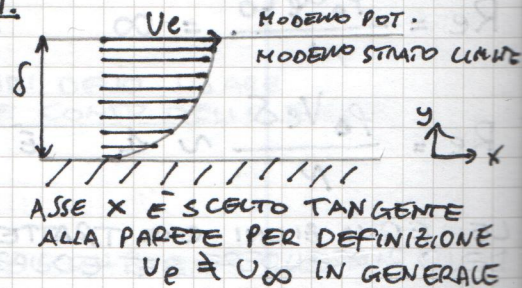 1.
Ue
MODELLO POT.
MODELLO STRATO LIMITE
δ
y
x
ASSE X È SCELTO TANGENTE
ALLA PARETE PER DEFINIZIONE
Ue ≠ U∞ IN GENERALE